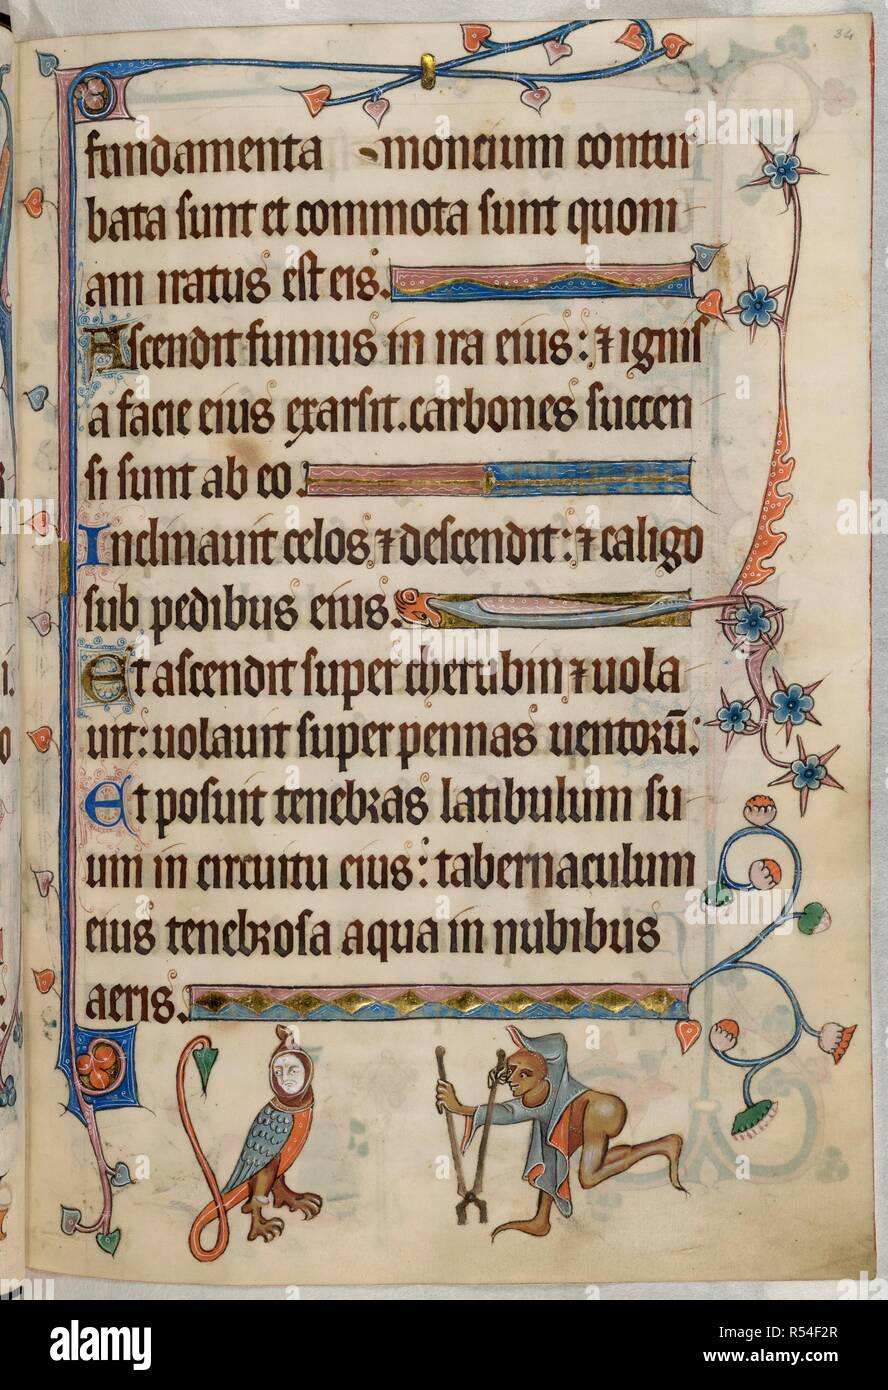 34
fundamenta moncium contur
bata sunt et commota sunt quoni
am iratus est eis.
Ascendit fumus in ira eius: ⁊ ignis
a facie eius exarsit. carbones succen
si sunt ab eo.
Inclinauit celos ⁊ descendit: ⁊ caligo
sub pedibus eius.
Et ascendit super cherubin ⁊ uola
uit: uolauit super pennas uentorū.
Et posuit tenebras latibulum su
um in circuitu eius: tabernaculum
eius tenebrosa aqua in nubibus
aeris.
alamy
a
alamy
Image ID: R54F2R
www.alamy.com